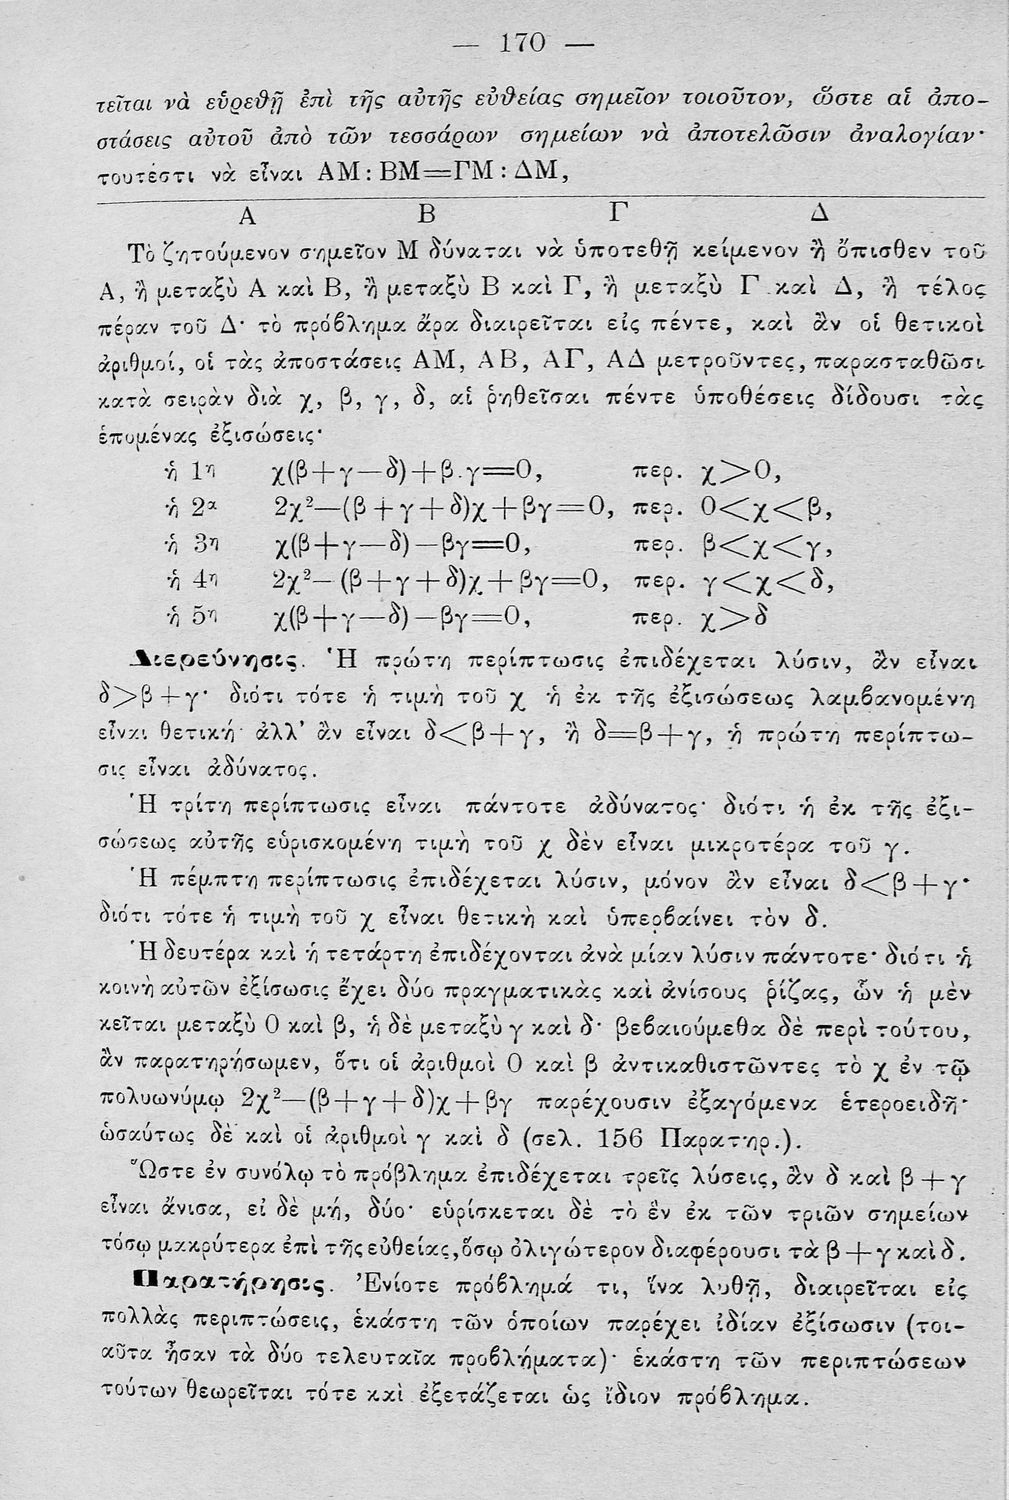 — 170 —
τεῖται νὰ εὑρεθῇ ἐπὶ τῆς αὐτῆς εὐθείας σημεῖον τοιοῦτον, ὥστε αἱ ἀπο-
στάσεις αὐτοῦ ἀπὸ τῶν τεσσάρων σημείων νὰ ἀποτελῶσιν ἀναλογίαν·
τουτέστι νὰ εἶναι ΑΜ : ΒΜ=ΓΜ : ΔΜ,
Α Β Γ Δ
Τὸ ζητούμενον σημεῖον Μ δύναται νὰ ὑποτεθῇ κείμενον ἢ ὄπισθεν τοῦ
Α, ἢ μεταξὺ Α καὶ Β, ἢ μεταξὺ Β καὶ Γ, ἢ μεταξὺ Γ καὶ Δ, ἢ τέλος
πέραν τοῦ Δ· τὸ πρόβλημα ἄρα διαιρεῖται εἰς πέντε, καὶ ἂν οἱ θετικοὶ
ἀριθμοί, οἱ τὰς ἀποστάσεις ΑΜ, ΑΒ, ΑΓ, ΑΔ μετροῦντες, παρασταθῶσι
κατὰ σειρὰν διὰ χ, β, γ, δ, αἱ ῥηθεῖσαι πέντε ὑποθέσεις δίδουσι τὰς
ἑπομένας ἐξισώσεις·
ἡ 1η χ(β+γ—δ)+β.γ=0, περ. χ>0,
ἡ 2α 2χ²—(β+γ+δ)χ+βγ=0, περ. 0<χ<β,
ἡ 3η χ(β+γ—δ)—βγ=0, περ. β<χ<γ,
ἡ 4η 2χ²—(β+γ+δ)χ+βγ=0, περ. γ<χ<δ,
ἡ 5η χ(β+γ—δ)—βγ=0, περ. χ>δ
Διερεύνησις. Ἡ πρώτη περίπτωσις ἐπιδέχεται λύσιν, ἂν εἶναι
δ>β+γ· διότι τότε ἡ τιμὴ τοῦ χ ἡ ἐκ τῆς ἐξισώσεως λαμβανομένη
εἶναι θετική· ἀλλ' ἂν εἶναι δ<β+γ, ἢ δ=β+γ, ἡ πρώτη περίπτω-
σις εἶναι ἀδύνατος.
Ἡ τρίτη περίπτωσις εἶναι πάντοτε ἀδύνατος· διότι ἡ ἐκ τῆς ἐξι-
σώσεως αὐτῆς εὑρισκομένη τιμὴ τοῦ χ δὲν εἶναι μικροτέρα τοῦ γ.
Ἡ πέμπτη περίπτωσις ἐπιδέχεται λύσιν, μόνον ἂν εἶναι δ<β+γ·
διότι τότε ἡ τιμὴ τοῦ χ εἶναι θετικὴ καὶ ὑπερβαίνει τὸν δ.
Ἡ δευτέρα καὶ ἡ τετάρτη ἐπιδέχονται ἀνὰ μίαν λύσιν πάντοτε· διότι ἡ
κοινὴ αὐτῶν ἐξίσωσις ἔχει δύο πραγματικὰς καὶ ἀνίσους ῥίζας, ὧν ἡ μὲν
κεῖται μεταξὺ 0 καὶ β, ἡ δὲ μεταξὺ γ καὶ δ· βεβαιούμεθα δὲ περὶ τούτου,
ἂν παρατηρήσωμεν, ὅτι οἱ ἀριθμοὶ 0 καὶ β ἀντικαθιστῶντες τὸ χ ἐν τῷ
πολυωνύμῳ 2χ²—(β+γ+δ)χ+βγ παρέχουσιν ἐξαγόμενα ἑτεροειδῆ·
ὡσαύτως δὲ καὶ οἱ ἀριθμοὶ γ καὶ δ (σελ. 156 Παρατηρ.).
Ὥστε ἐν συνόλῳ τὸ πρόβλημα ἐπιδέχεται τρεῖς λύσεις, ἂν δ καὶ β+γ
εἶναι ἄνισα, εἰ δὲ μή, δύο· εὑρίσκεται δὲ τὸ ἓν ἐκ τῶν τριῶν σημείων
τόσῳ μακρύτερα ἐπὶ τῆς εὐθείας, ὅσῳ ὀλιγώτερον διαφέρουσι τὰ β+γ καὶ δ.
Παρατήρησις. Ἐνίοτε πρόβλημά τι, ἵνα λυθῇ, διαιρεῖται εἰς
πολλὰς περιπτώσεις, ἑκάστη τῶν ὁποίων παρέχει ἰδίαν ἐξίσωσιν (τοι-
αῦτα ἦσαν τὰ δύο τελευταῖα προβλήματα)· ἑκάστη τῶν περιπτώσεων
τούτων θεωρεῖται τότε καὶ ἐξετάζεται ὡς ἴδιον πρόβλημα.